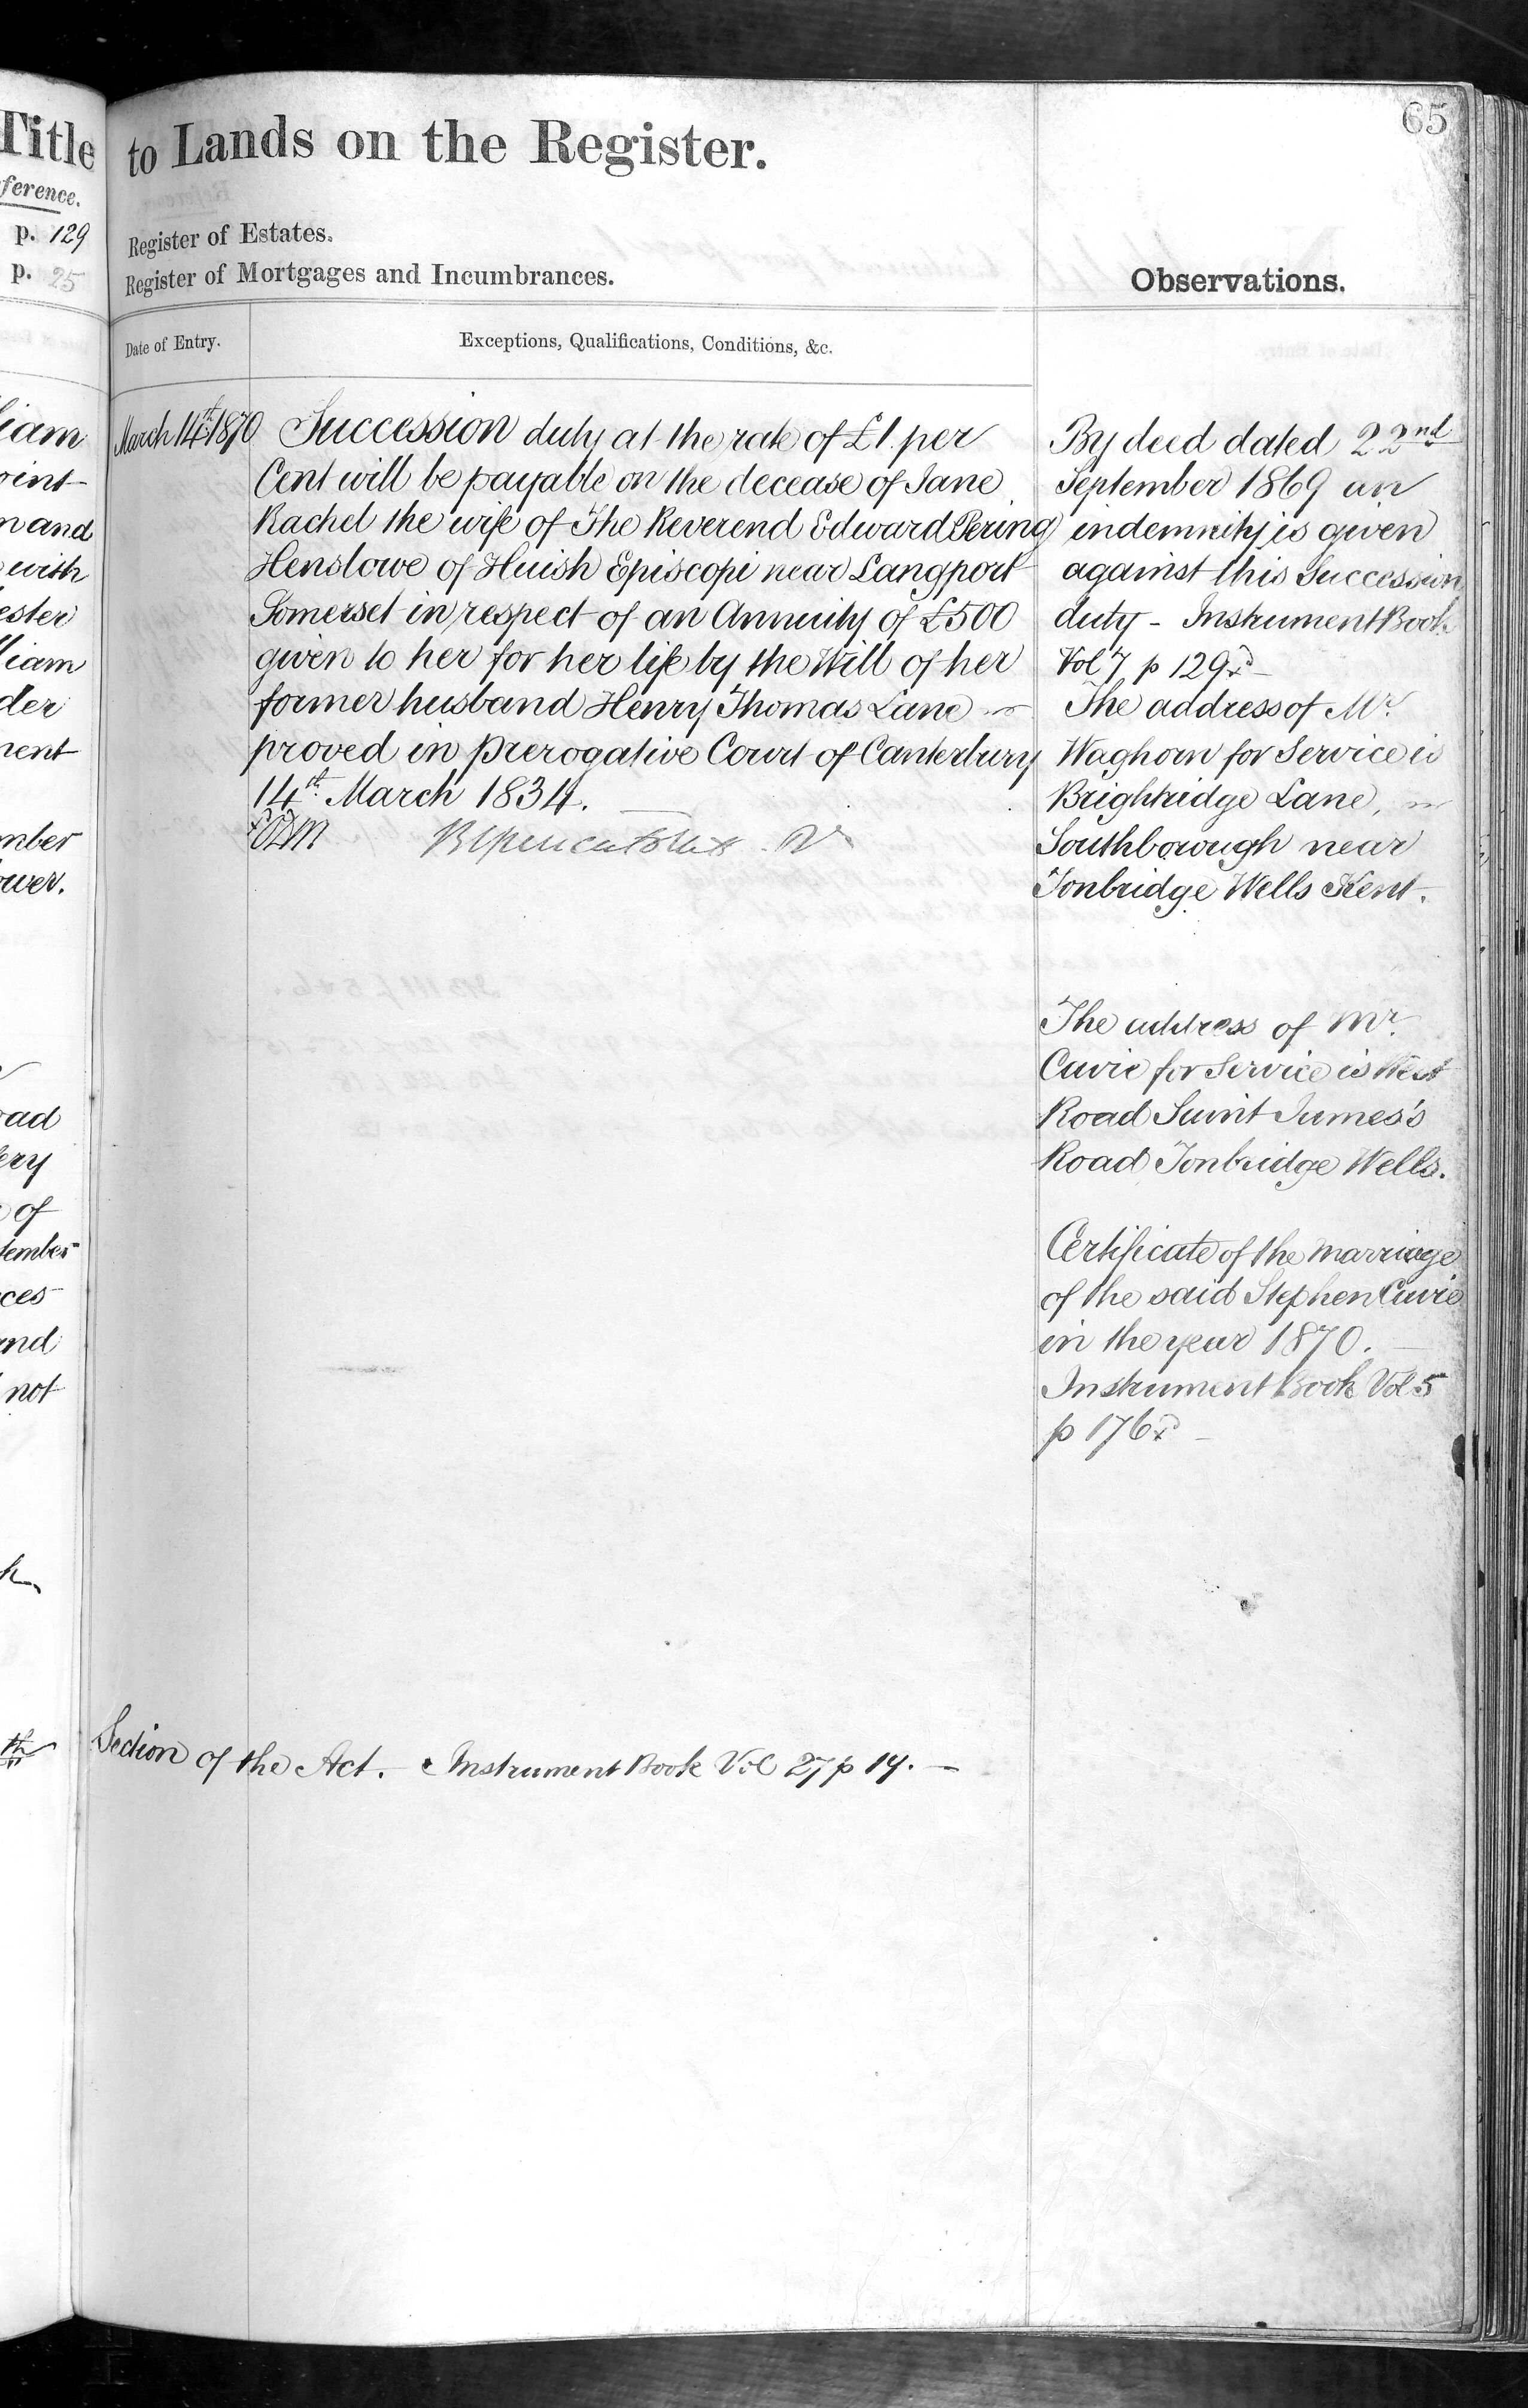 Title
ference.
p. 129
p. 25
65
to Lands on the Register.
Register of Estates.
Register of Mortgages and Incumbrances.
Observations.
Date of Entry.
Exceptions, Qualifications, Conditions, &c.
March 14th 1870
Succession duty at the rate of £1 per
Cent will be payable on the decease of Jane
Rachel the wife of The Reverend Edward Pering
Henslowe of Huish Episcopi near Langport
Somerset in respect of an Annuity of £500
given to her for her life by the Will of her
former husband Henry Thomas Lane
proved in Prerogative Court of Canterbury
14th March 1834.
By deed dated 22nd
September 1869 an
indemnity is given
against this Succession
duty - Instrument Book
Vol 7 p 129
The address of Mr.
Waghorn for Service is
Brightridge Lane,
Southborough near
Tonbridge Wells Kent.
The address of Mr.
Cavie for Service is West
Road Saint James's
Road Tonbridge Wells.
Certificate of the marriage
of the said Stephen Cavie
in the year 1870.
Instrument Book Vol 5
p 176
Section of the Act. - Instrument Book Vol 27 p 14. -
liam
oint
n and
with
ester
liam
der
ment
mber
ower.
oad
ery
of
tember
ces
and
not
th